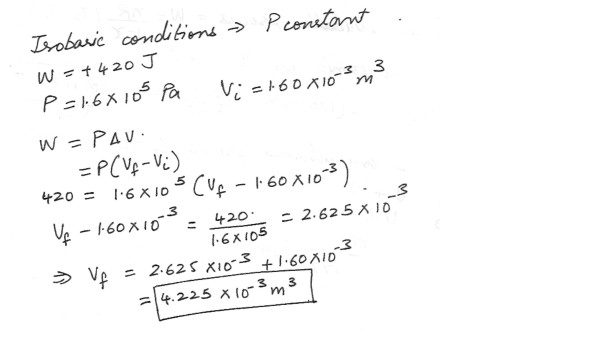 Isobaric conditions → P constant
W = + 420 J
P = 1.6 × 10⁵ Pa Vᵢ = 1.60 × 10⁻³ m³
W = P Δ V.
= P(V_f - Vᵢ)
420 = 1.6 × 10⁵ (V_f - 1.60 × 10⁻³)
V_f - 1.60 × 10⁻³ = 420. / 1.6 × 10⁵ = 2.625 × 10⁻³
⇒ V_f = 2.625 × 10⁻³ + 1.60 × 10⁻³
= 4.225 × 10⁻³ m³